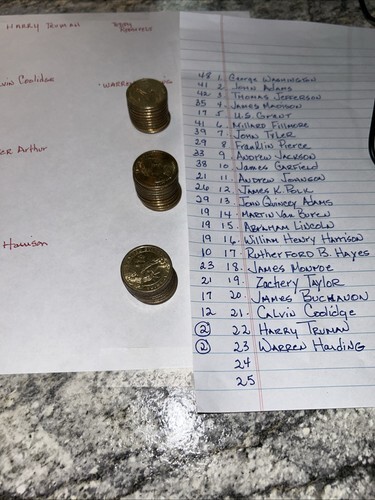 HARRY TRUMAN
Teddy
Roosevelt
vin Coolidge
WARREN
er Arthur
Harrison
48 1. George Washington
41 2. John Adams
42 3. Thomas Jefferson
35 4. James Madison
19 5. U.S. Grant
41 6. Millard Fillmore
39 7. John Tyler
29 8 Franklin Pierce
33 9. Andrew Jackson
38 10. James Garfield
21 11. Andrew Johnson
26 12. James K. Polk
29 13. John Quincey Adams
19 14. Martin Van Buren
19 15. Abraham Lincoln
19 16. William Henry Harrison
10 17. Rutherford B. Hayes
23 18. James Monroe
21 19. Zachery Taylor
17 20. James Buchanon
12 21. Calvin Coolidge
2 22 Harry Truman
2 23 Warren Harding
24
25